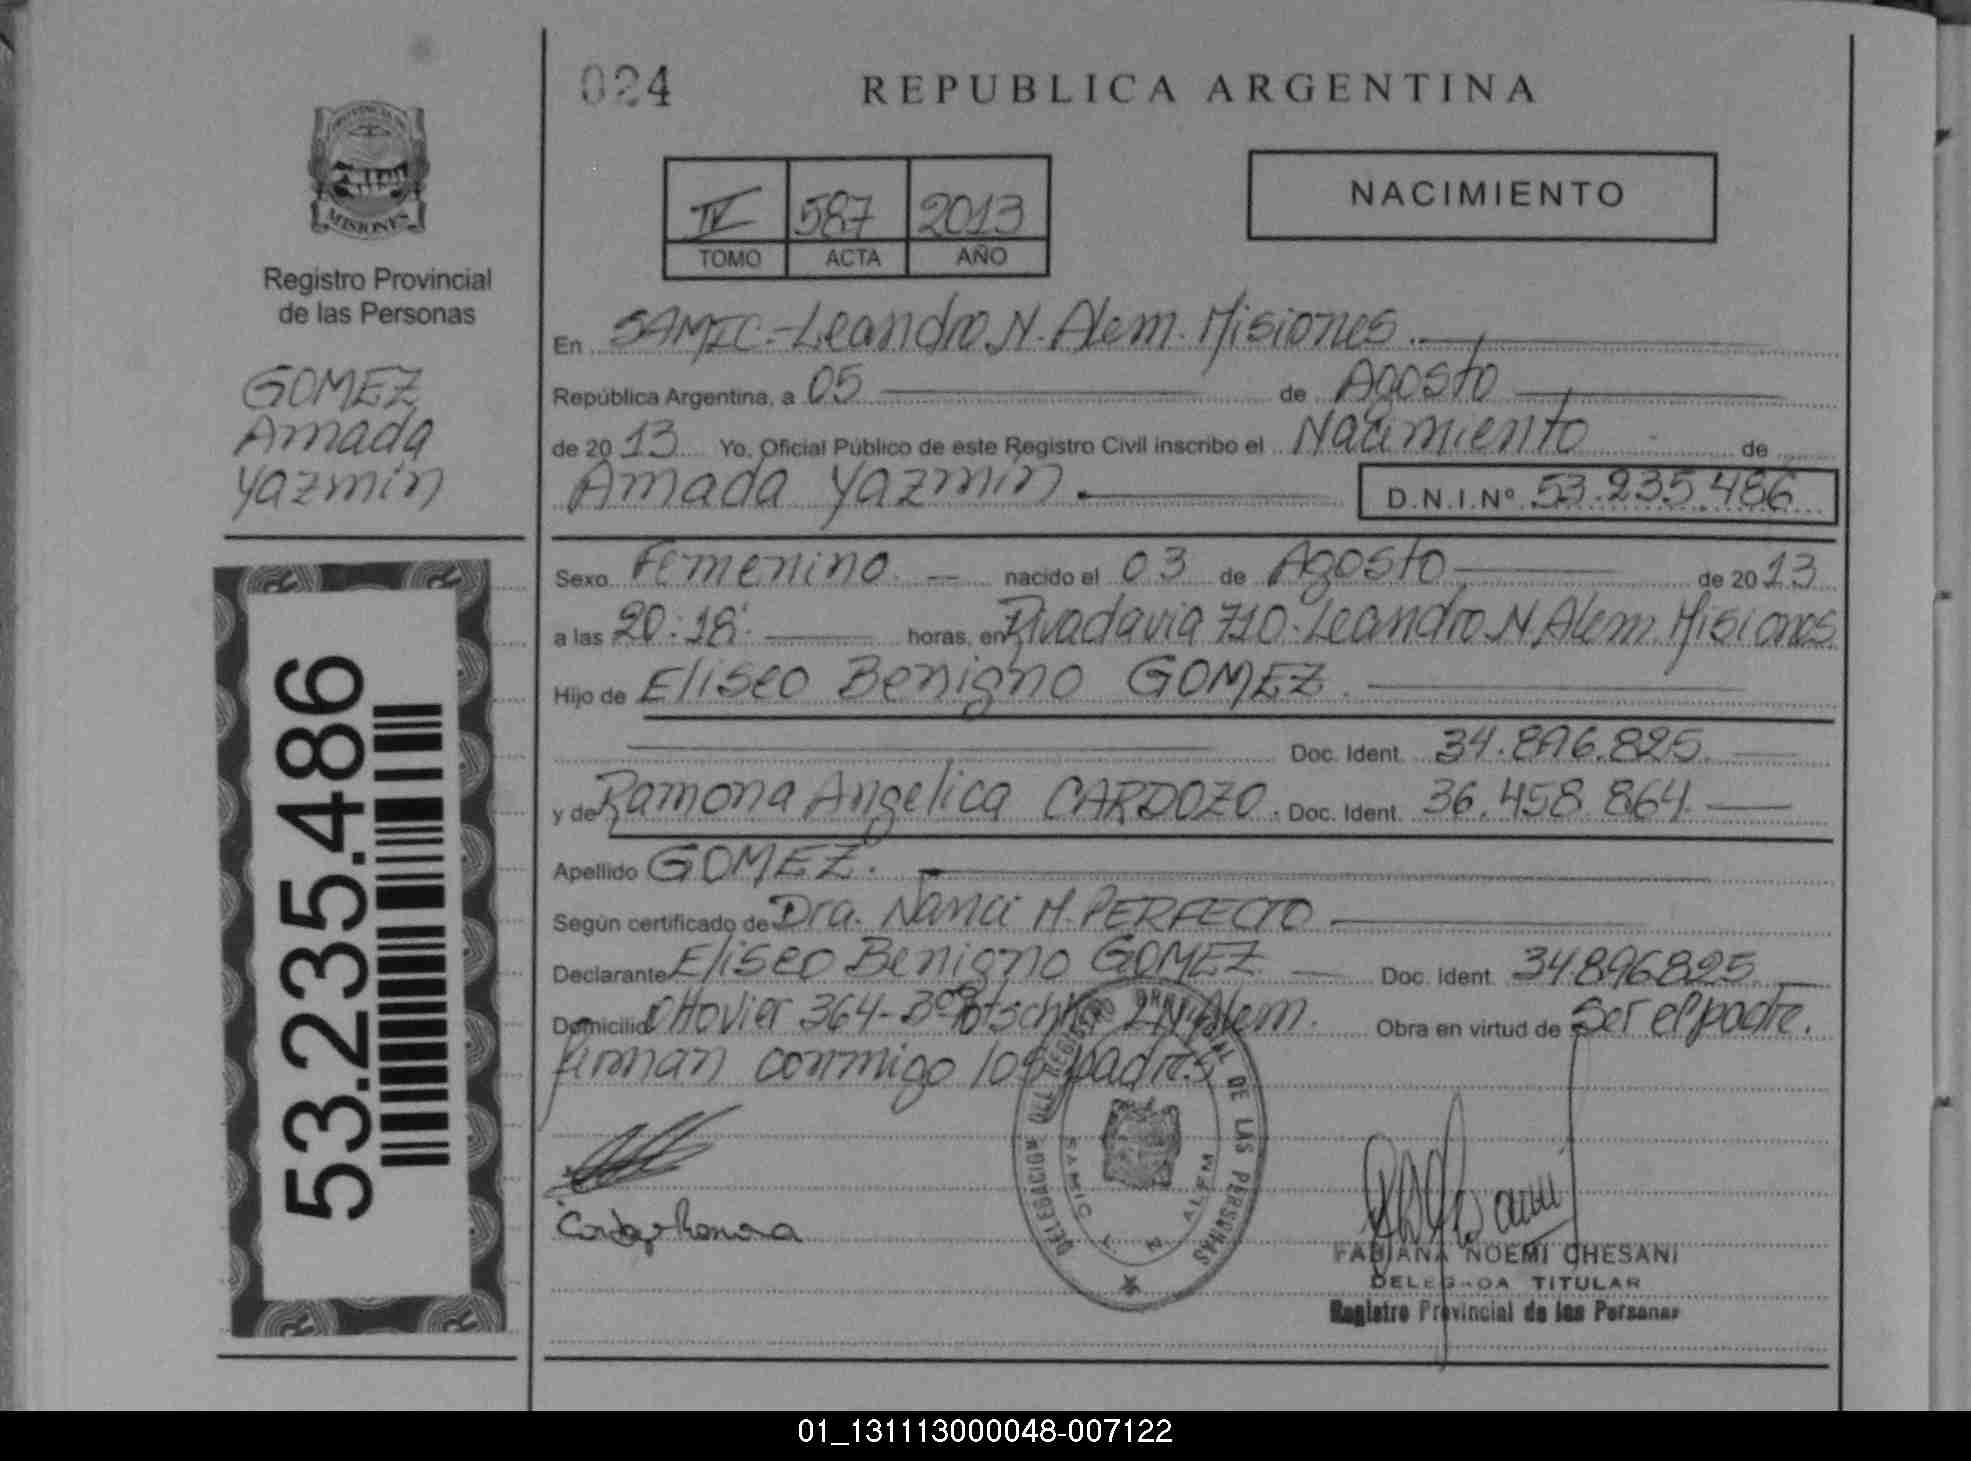 024
REPUBLICA ARGENTINA
MISIONES
Registro Provincial
de las Personas
GOMEZ
Amada
Yazmín
53.235.486
IV 587 2013
TOMO ACTA AÑO
NACIMIENTO
En SAMIC.-Leandro N. Alem. Misiones.
República Argentina, a 05 de Agosto
de 2013 Yo, Oficial Público de este Registro Civil inscribo el Nacimiento de
Amada Yazmín. D.N.I.Nº 53.235.486
Sexo Femenino. nacido el 03 de Agosto de 2013
a las 20:18. horas, en Rivadavia 710. Leandro N. Alem. Misiones.
Hijo de Eliseo Benigno GOMEZ.
Doc. Ident. 34.896.825.
y de Ramona Angelica CARDOZO. Doc. Ident. 36.458.864.
Apellido GOMEZ.
Según certificado de Dra. Nanci M. PERFECTO
Declarante Eliseo Benigno GOMEZ. Doc. Ident. 34.896.825.
Domicilio 364 - Bº L.N. Alem. Obra en virtud de Ser el padre.
firman conmigo los padres
DELEGACION DEL REGISTRO PROVINCIAL DE LAS PERSONAS
SAMIC L. N. ALEM
FABIANA NOEMI CHESANI
DELEGADA TITULAR
Registro Provincial de las Personas
01_131113000048-007122